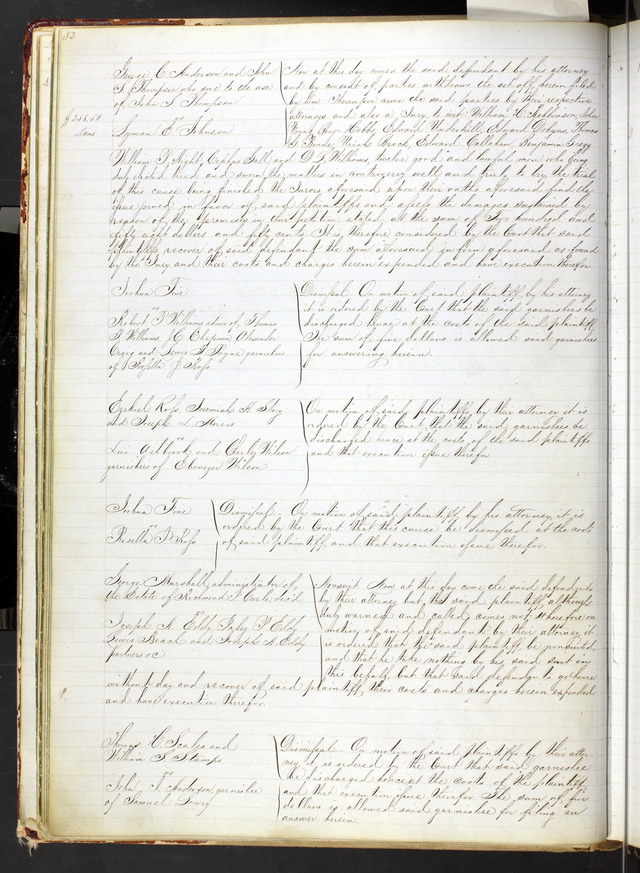 52
George C. Anderson and John
S. Thompson who sue to the use
of John S. Thompson
$258.50
Vs
Lyman E. Johnson
Now at this day comes the said defendant by his attorney
and by consent of parties withdraws the set off herein filed
by him. Thereupon come the said parties by their respective
attorneys and also a Jury to wit William H. Robinson, John
Hobbs, Edward Underhill, Edward Dobyns, Thomas
Brock, Edward Callahan, Benjamin Gregg
William P. Cephas Sall and D. J. Williams, twelve good and lawful men who being
duly elected tried and sworn the matters in controversy well and truly to try the trial
of this cause being finished the Jurors aforesaid upon their oaths aforesaid find the
issue joined in favor of said plaintiffs and assess the damages sustained by
reason of the premises in the petition stated at the sum of Two hundred and
fifty eight dollars and fifty cents. It is therefore considered by the Court that said
plaintiffs recover of said defendant the sum aforesaid in form aforesaid as found
by the Jury and their costs and charges herein expended and have execution therefor
Joshua Tine
vs
Robert P. Williams admr of Thomas
P. Williams J. C. Chapman Alexander
Craig and Lewis F. Payne garnishees
of Rosella J. Ross
Dismissal. On motion of said plaintiff by his attorney
it is ordered by the Court that the said garnishees be
discharged hence at the costs of the said plaintiff
The sum of five dollars is allowed said garnishees
for answering herein.
Ezekiel Ross, Jeremiah H. Story
and Joseph L. Morris
vs
Levi Ashbrook and Charley Wilson
garnishees of Ebenezer Wilson
On motion of said plaintiffs by their attorney it is
ordered by the Court that the said garnishees be
discharged hence at the costs of the said plaintiffs
and that execution issue therefor
Joshua Tine
vs
Rosella J. Ross
Dismissal - On motion of said plaintiff by his attorney it is
ordered by the Court that this cause be dismissed at the costs
of said plaintiff and that execution issue therefor.
George Marshall administrator of
the Estate of Richmond J. Curle, dec'd
vs
Joseph N. Eddy Eddy
Lewis and Joseph N. Eddy
partners &c
Nonsuit Now at this day come the said defendants
by their attorney but the said plaintiff although
duly warned and called comes not, wherefore on
motion of said defendants by their attorney, it
is ordered that the said plaintiff be nonsuited
and that he take nothing by his said suit in
this behalf but that said defendants go hence
without day and recover of said plaintiff their costs and charges herein expended
and have execution therefor.
Thomas C. Scales and
William S. Stamps
vs
John T. Anderson garnishee
of Samuel Lowry
Dismissal - On motion of said plaintiffs by their attor-
ney it is ordered by the Court that said garnishee
be discharged hence at the costs of the plaintiffs
and that execution issue therefor. The sum of five
dollars is allowed said garnishee for filing an
answer herein.